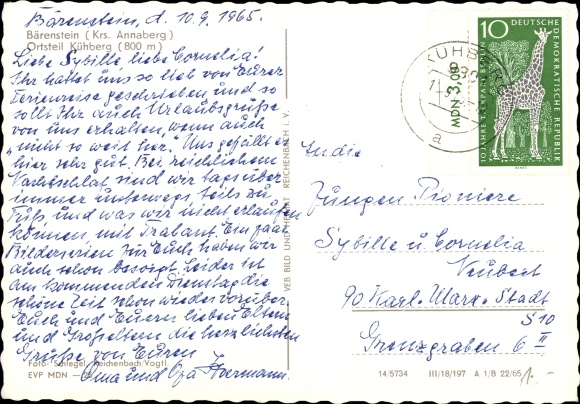 Bärenstein, d. 10.9.1965.
Bärenstein (Krs. Annaberg)
Ortsteil Kühberg (800 m)
Liebe Sybille, liebe Cornelia!
Ihr hattet uns so lieb von Eurer
Ferienreise geschrieben und so
sollt Ihr auch Urlaubsgrüße
von uns erhalten, wenn auch
"nicht so weit her". Uns gefällt es
hier sehr gut. Bei reichlichem
Nachtschlaf sind wir tagsüber
immer unterwegs, teils zu
Fuß und was wir nicht erlaufen
können mit Trabant. Ein paar
Bilderserien für Euch haben wir
auch schon besorgt. Leider ist
am kommenden Dienstag die
schöne Zeit schon wieder vorüber.
Euch und Eueren lieben Eltern
und Großeltern die herzlichsten
Grüße von Euren
Foto: Schlegel, Reichenbach/Vogtl.
EVP MDN
Oma und Opa
VEB BILD UND HEIMAT REICHENBACH I. V.
MDN 3,00
10 DEUTSCHE
DEMOKRATISCHE REPUBLIK
10 JAHRE TIERPARK BERLIN
KÜHBERG
a
An die
Jungen Pioniere
Sybille u. Cornelia
Neubert
90 Karl-Marx-Stadt
S 10
Grenzgraben 6 II
14/5734 III/18/197 A 1/B 22/65
1.-